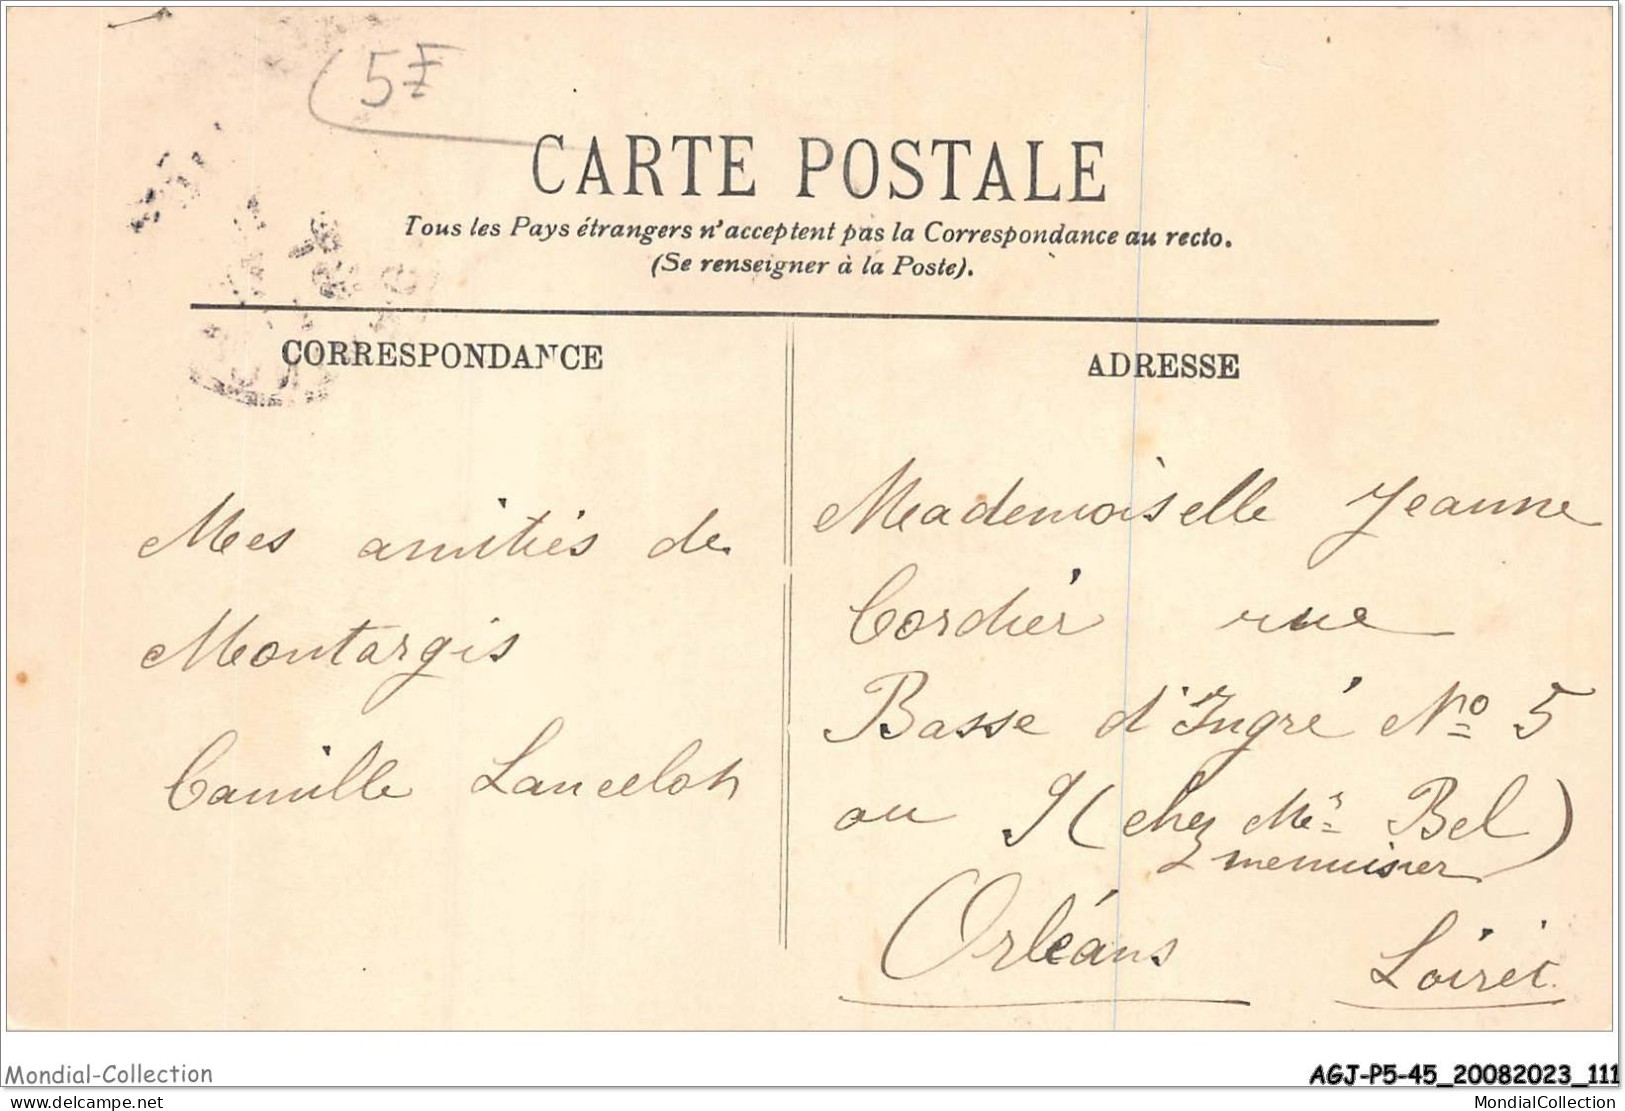 5F
CARTE POSTALE
Tous les Pays étrangers n'acceptent pas la Correspondance au recto.
(Se renseigner à la Poste).
CORRESPONDANCE
Mes amitiés de
Montargis
Camille Lancelot
ADRESSE
Mademoiselle Jeanne
Cordier rue
Basse d'Ingré No 5
ou 9 (chez Mr Bel)
menuisier
Orléans Loiret.
Mondial-Collection
AGJ-P5-45_20082023_111
delcampe.net
MondialCollection